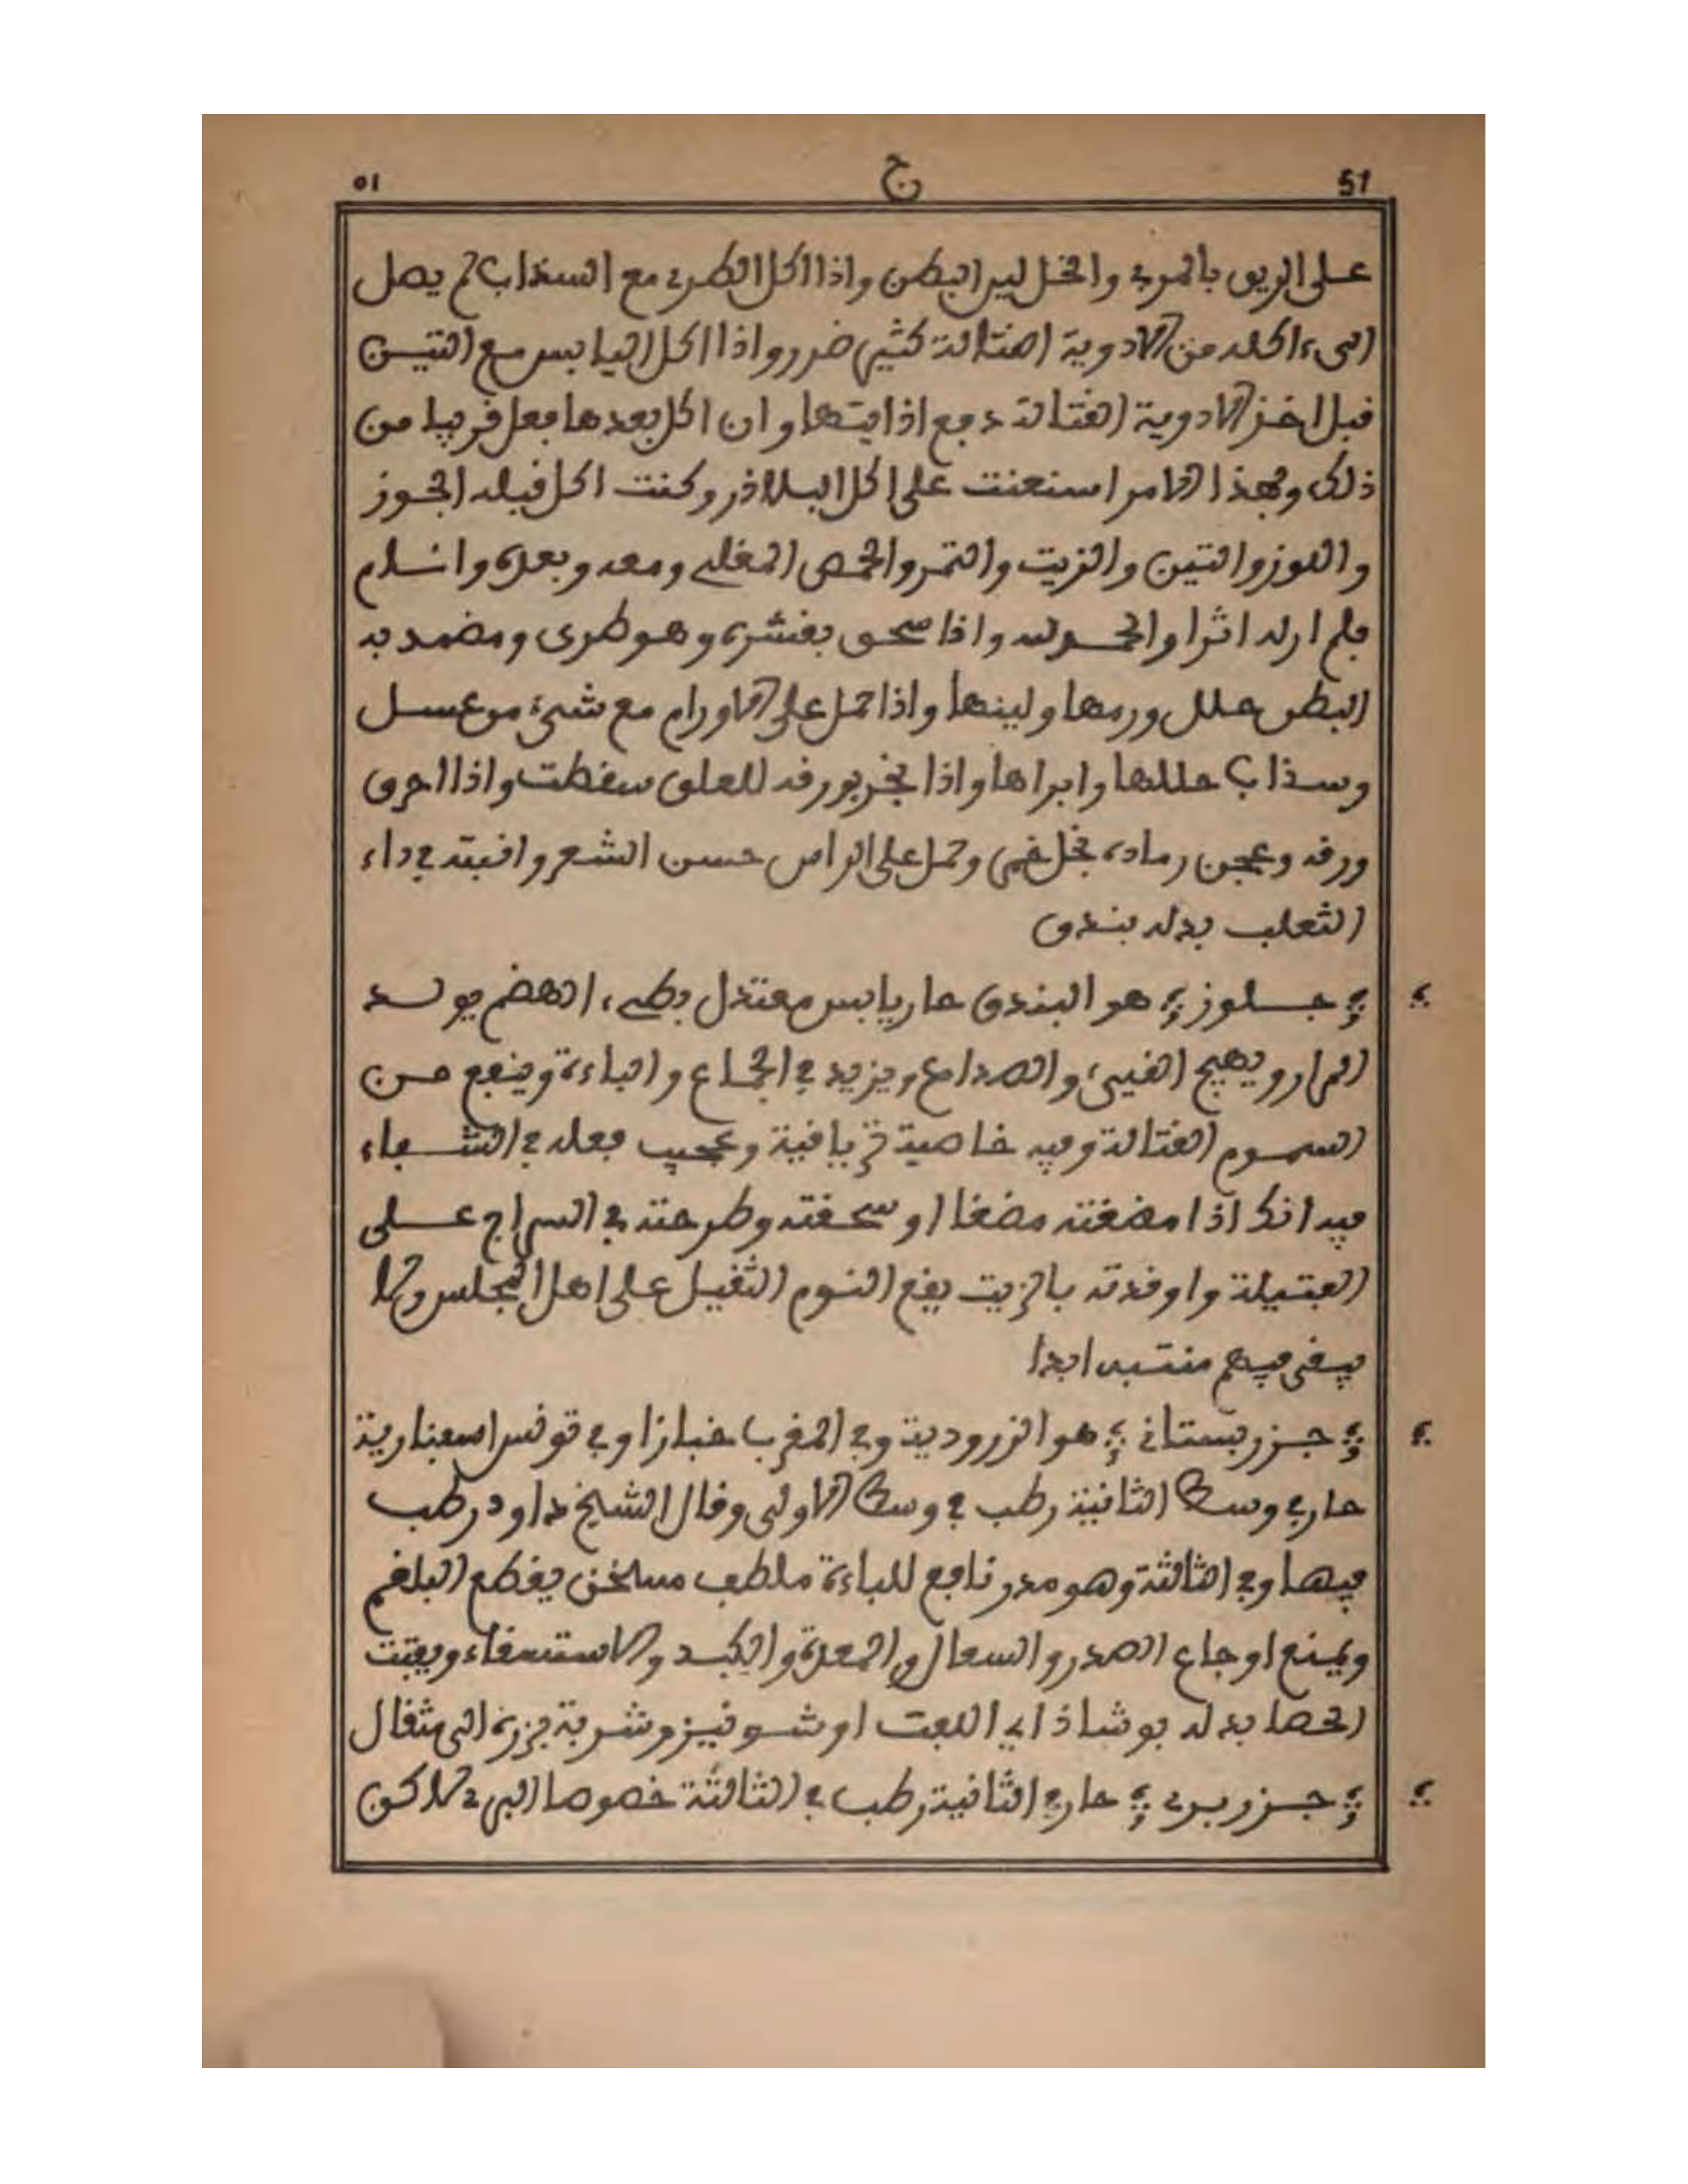 51 ج ٥١
على الريق بالمري والخل لين البطن واذا اكل الطري مع السذاب لم يصل
الى اكله من الادوية القتالة كثير ضرر واذا اكل اليابس مع التين
قبل اخذ الادوية القتالة دفع اذايتها وان اكل بعدها فعل قريبا من
ذلك وبهذا الامر استعنت على اكل البلاذر وكنت اكل قبله الجوز
واللوز والتين والزيت والتمر والحمص المغلي ومعه وبعده وانسلم
فلم ار له اثرا والحمد لله واذا سحق بقشره وهو طري وضمد به
البطن حلل ورمها ولينها واذا حمل على الاورام مع شيء من عسل
وسذاب حللها وابراها واذا بخر بورقه للعلق سقطت واذا احرق
ورقه وعجن رماده بخل خمر وحمل على الراس حسن الشعر وانبته في داء
الثعلب بدله بندق
جلوز هو البندق حار يابس معتدل بطيء الهضم يولد
المرار ويهيج القيء والصداع ويزيد في الجماع والباءة وينفع من
السموم القتالة وفيه خاصية ترياقية وعجيب فعله في الشتاء
فيه انك اذا مضغته مضغا او سحقته وطرحته في السراج على
الفتيلة واوقدته بالزيت يقع النوم الثقيل على اهل المجلس ولا
يبقى فيهم منتبه ابدا
جزر بستاني هو الزرودية وفي المغرب خبازا وفي تونس اسفنارية
حار في وسط الثانية رطب في وسط الاولى وقال الشيخ داود رطب
فيها وفي الثالثة وهو مدر نافع للباءة ملطف مسخن يقطع البلغم
ويمنع اوجاع الصدر والسعال والمعدة والكبد والاستسقاء ويفتت
الحصا بدله بوشاذ اي اللفت او شونيز وشربة بزره الى مثقال
جزر بري حار في الثانية رطب في الثالثة خصوصا البري لاكن